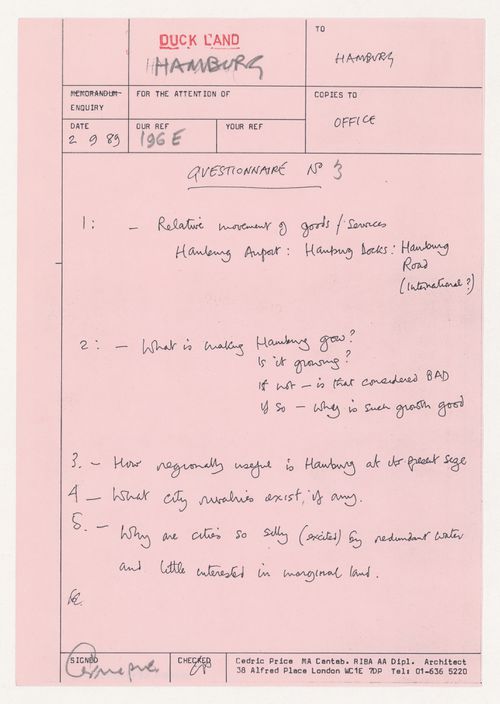 DUCK LAND
HAMBURG
TO
HAMBURG
MEMORANDUM
ENQUIRY
FOR THE ATTENTION OF
COPIES TO
OFFICE
DATE
2 9 89
OUR REF
196 E
YOUR REF
QUESTIONNAIRE No 3
1: - Relative movement of goods / services
Hamburg Airport: Hamburg Docks: Hamburg
Road
(International?)
2: - What is making Hamburg grow?
Is it growing?
If not - is that considered BAD
If so - why is such growth good
3. - How regionally useful is Hamburg at its present size
4 - What city rivalries exist, if any.
5. - Why are cities so silly (excited) by redundant water
and little interested in marginal land.
SIGNED
CHECKED
CP
Cedric Price MA Cantab. RIBA AA Dipl. Architect
38 Alfred Place London WC1E 7DP Tel: 01-636 5220